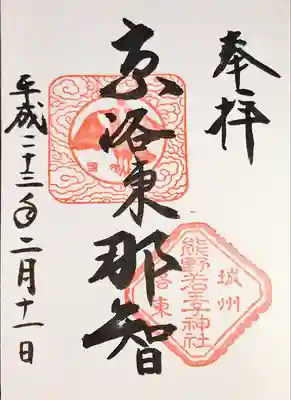 奉拝
京洛東那智
城州
熊野若王子神社
洛東
平成二十三年二月十一日